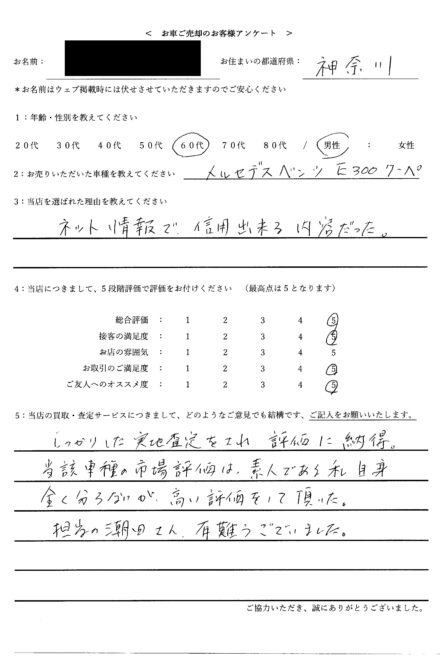 ＜　お車ご売却のお客様アンケート　＞
お名前：　お住まいの都道府県：　神奈川
＊お名前はウェブ掲載時には伏せさせていただきますのでご安心ください
1：年齢・性別を教えてください
20代　30代　40代　50代　60代　70代　80代　/　男性　：　女性
2：お売りいただいた車種を教えてください　メルセデスベンツ E300クーペ
3：当店を選ばれた理由を教えてください
ネット情報で、信用出来る内容だった。
4：当店につきまして、5段階評価で評価をお付けください　（最高点は5となります）
総合評価　：　1　2　3　4　5
接客の満足度　：　1　2　3　4　5
お店の雰囲気　：　1　2　3　4　5
お取引のご満足度　：　1　2　3　4　5
ご友人へのオススメ度　：　1　2　3　4　5
5：当店の買取・査定サービスにつきまして、どのようなご意見でも結構です、ご記入をお願いいたします。
しっかりした実地査定をされ 評価に納得。
当該車種の市場評価は、素人である私自身
全く分らないが、高い評価をして頂いた。
担当の潮田さん、有難うございました。
ご協力いただき、誠にありがとうございました。